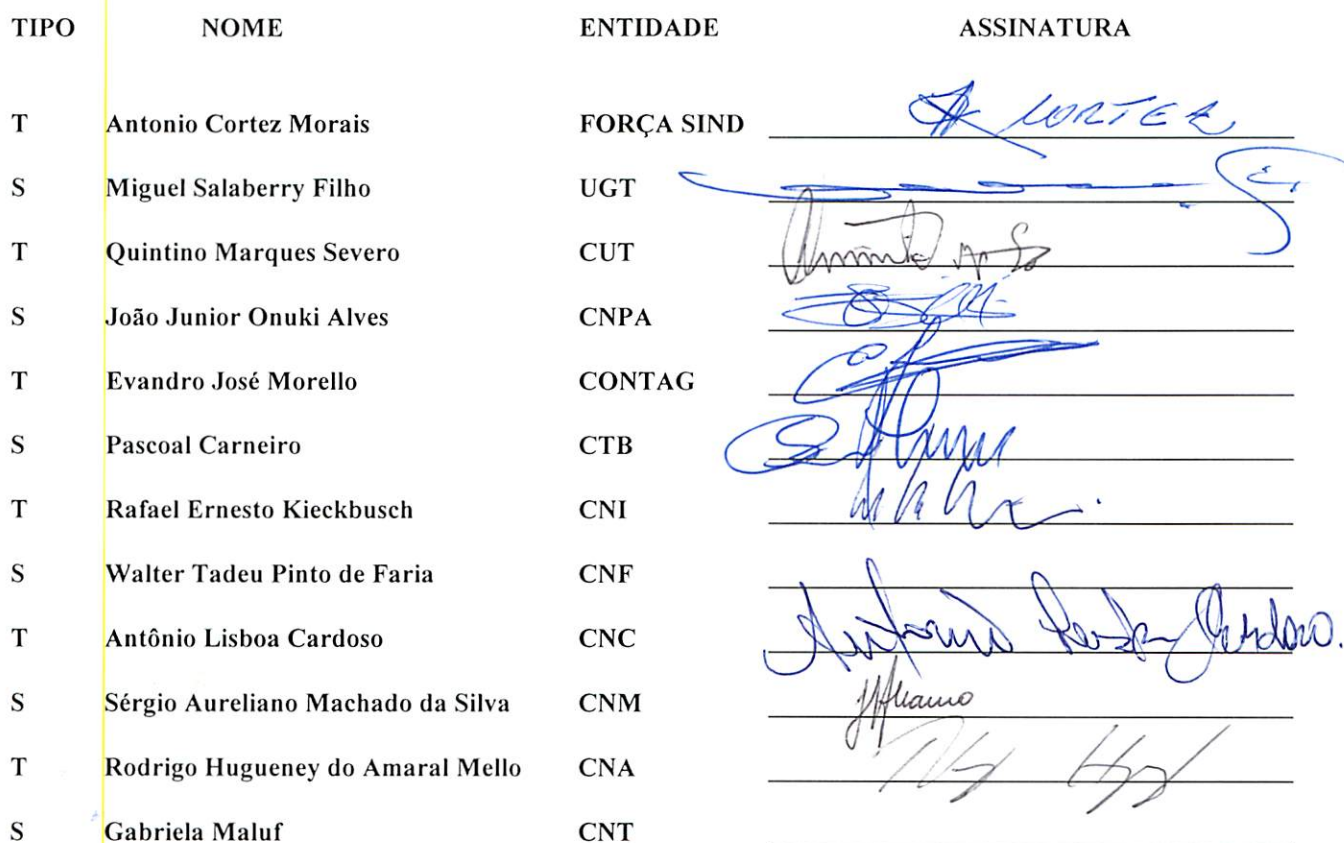 TIPO NOME ENTIDADE ASSINATURA
T Antonio Cortez Morais FORÇA SIND CORTEZ
S Miguel Salaberry Filho UGT
T Quintino Marques Severo CUT
S João Junior Onuki Alves CNPA
T Evandro José Morello CONTAG
S Pascoal Carneiro CTB
T Rafael Ernesto Kieckbusch CNI
S Walter Tadeu Pinto de Faria CNF
T Antônio Lisboa Cardoso CNC Antonio Lisboa Cardoso.
S Sérgio Aureliano Machado da Silva CNM
T Rodrigo Hugueney do Amaral Mello CNA
S Gabriela Maluf CNT